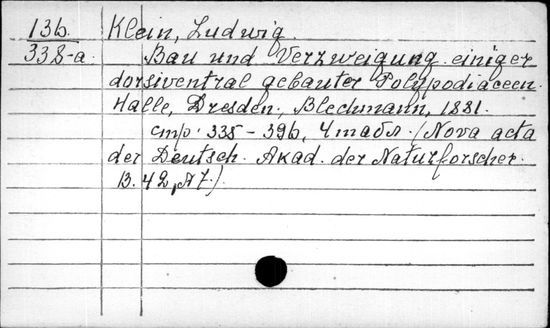 136. Klein, Ludwig.
338-a. Bau und Verzweigung einiger
dorsiventral gebauter Polypodiaceen.
Halle, Dresden, Blochmann, 1881.
стр. 335-396, 4 табл. (Nova acta
der Deutsch. Akad. der Naturforscher.
B. 42, N 7.)